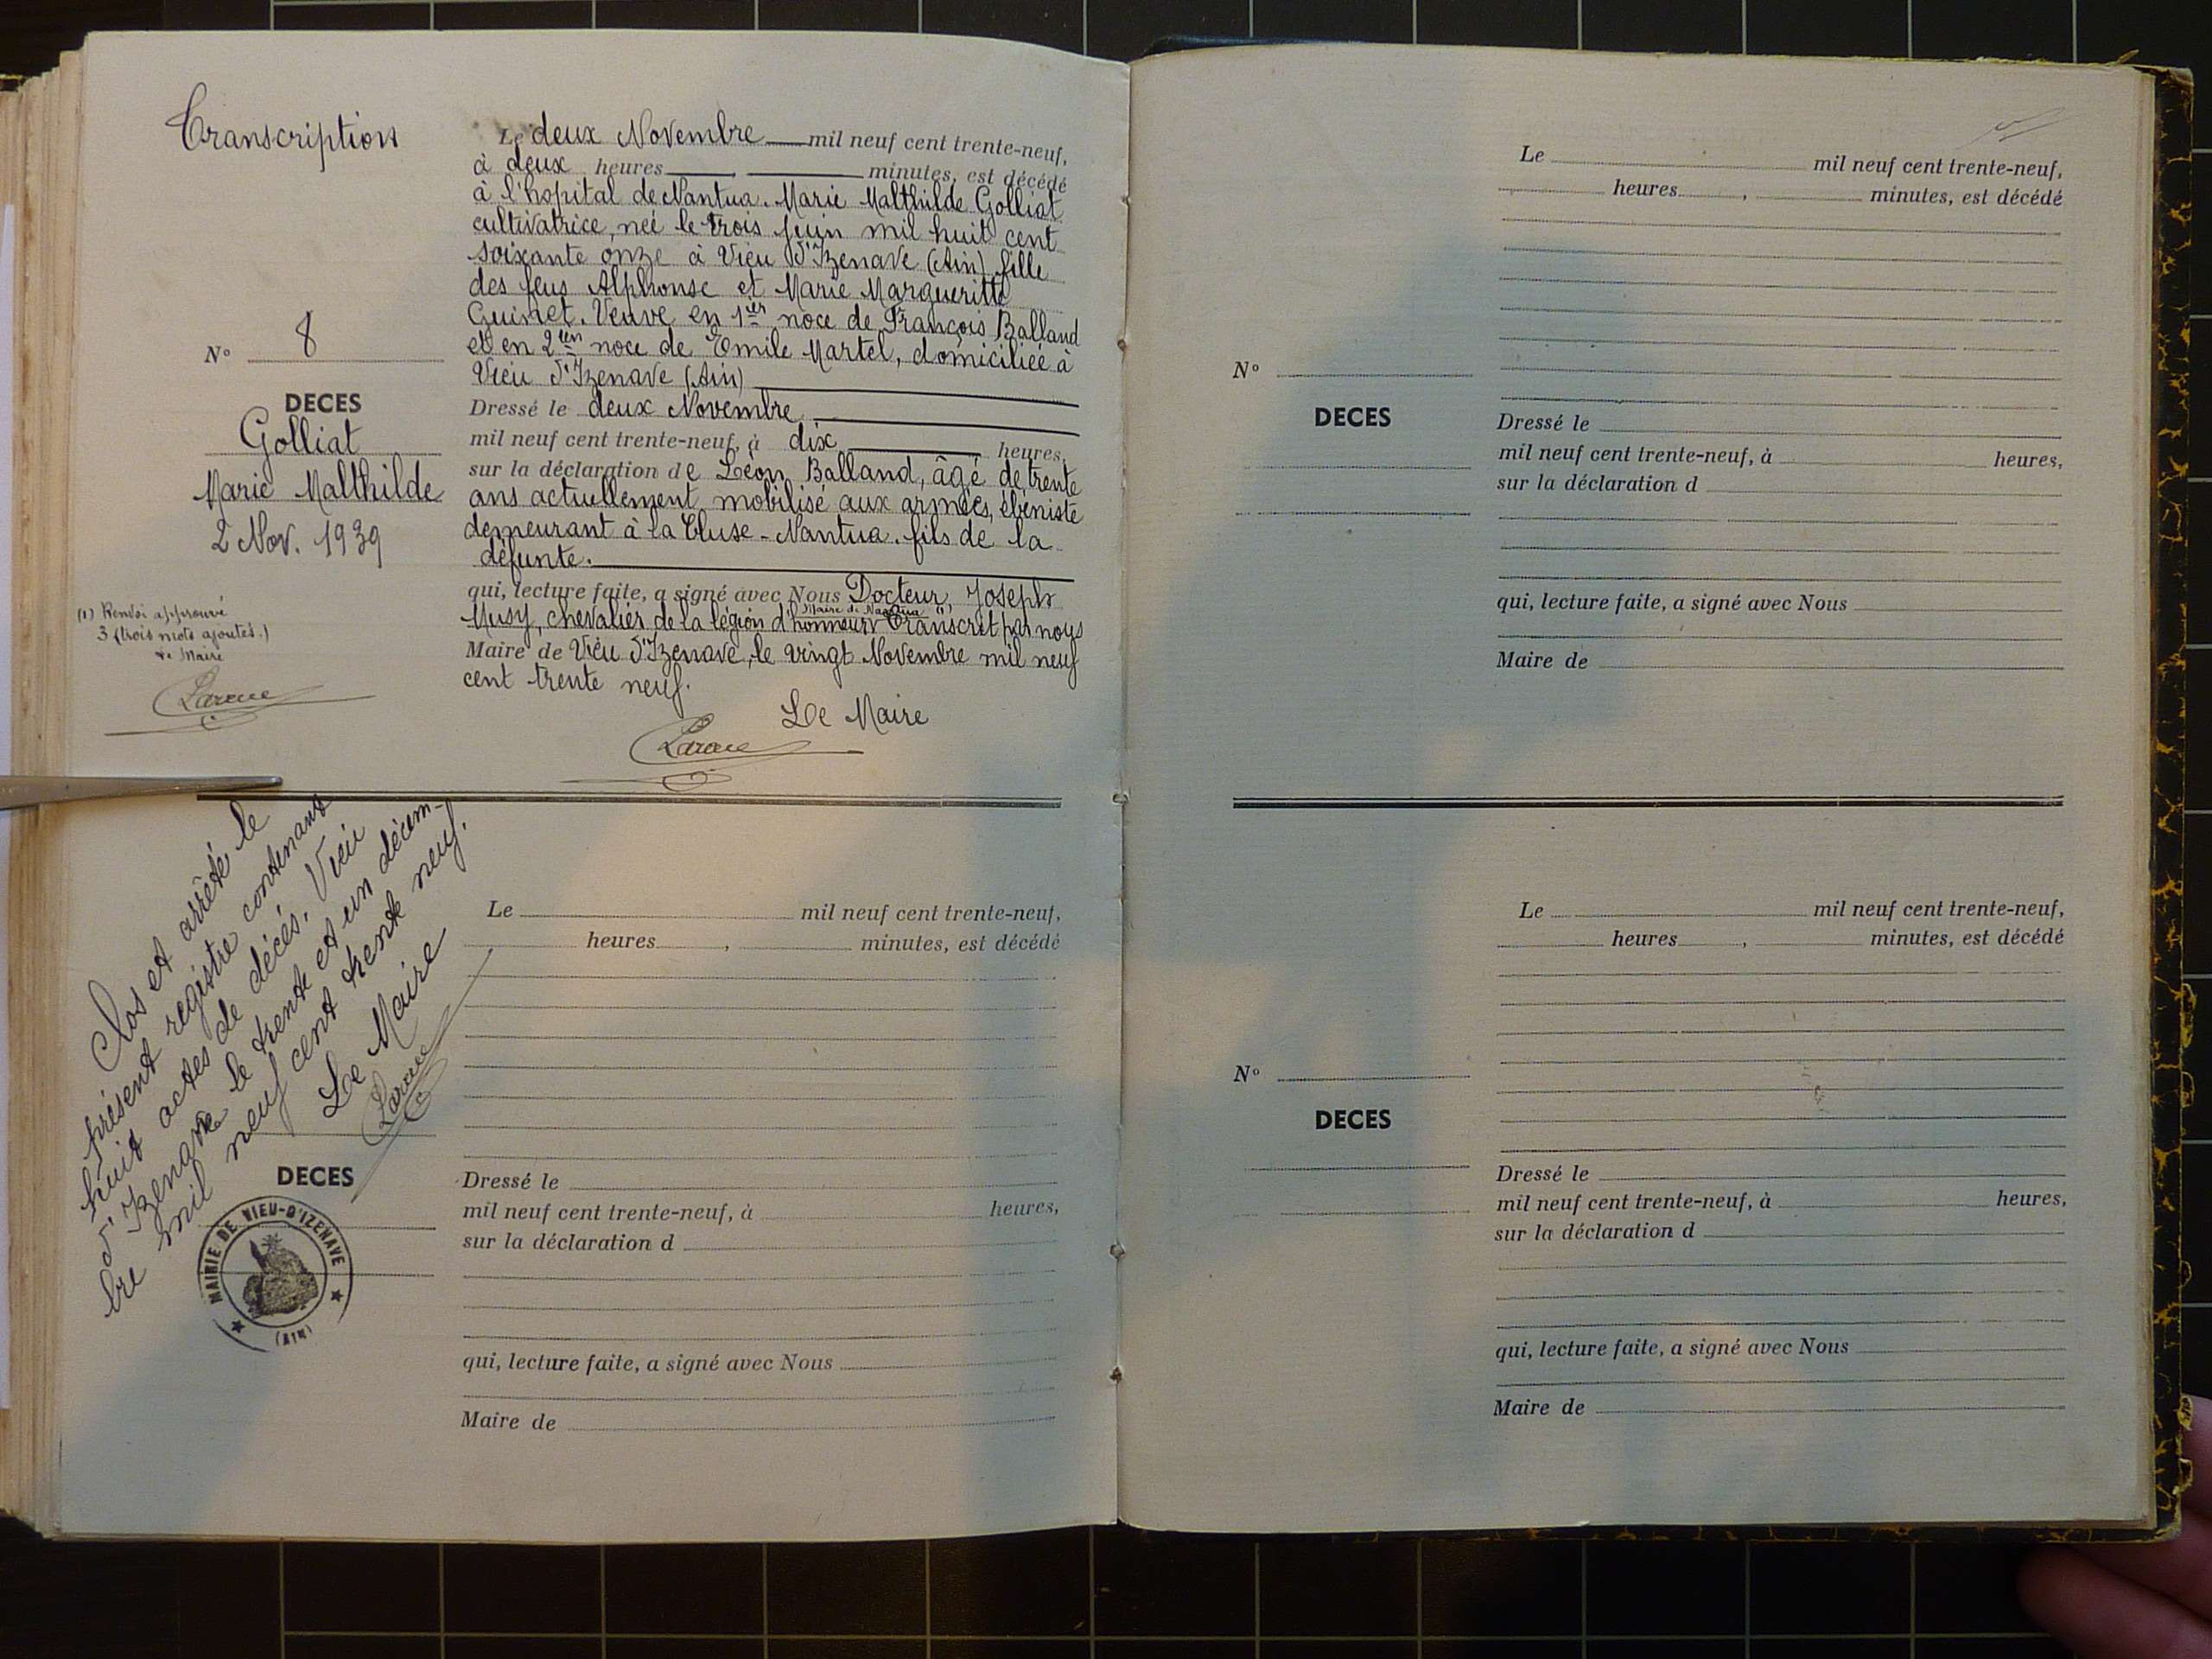 Transcription
Le deux Novembre mil neuf cent trente-neuf,
à deux heures , minutes, est décédé
à l'hopital de Nantua. Marie Malthilde Golliat
cultivatrice, neé le trois Juin mil huit cent
soixante onze à Vieu d'Izenave (Ain) fille
des feus Alphonse et Marie Margueritte
Guinet. Veuve en 1ier noce de François Balland
et en 2ien noce de Emile Martel, domiciliée à
Vieu d'Izenave (Ain)
Dressé le deux Novembre
mil neuf cent trente-neuf, à dix heures,
sur la déclaration de Léon Balland, âgé de trente
ans actuellement mobilisé aux armées, ébéniste
demeurant à la Cluse-Nantua. fils de la
défunte.
qui, lecture faite, a signé avec Nous Docteur Joseph
Maire de Nantua (1)
Musy, chevalier de la légion d'honneur Transcrit par nous
Maire de Vieu d'Izenave, le vingt Novembre mil neuf
cent trente neuf.
Le Maire
N° 8
DECES
Golliat
Marie Malthilde
2 Nov. 1939
(1) Renvoi approuvé
3 (trois mots ajoutés.)
Le Maire
Clos et arrêté le
présent registre contenant
huit actes de décés. Vieu
d'Izenave le trente et un décem-
bre mil neuf cent trente neuf.
Le Maire
DECES
MAIRIE DE VIEU-D'IZENAVE
(AIN)
Le mil neuf cent trente-neuf,
heures , minutes, est décédé
Dressé le
mil neuf cent trente-neuf, à heures,
sur la déclaration d
qui, lecture faite, a signé avec Nous
Maire de
Le mil neuf cent trente-neuf,
heures , minutes, est décédé
N°
DECES
Dressé le
mil neuf cent trente-neuf, à heures,
sur la déclaration d
qui, lecture faite, a signé avec Nous
Maire de
Le mil neuf cent trente-neuf,
heures , minutes, est décédé
N°
DECES
Dressé le
mil neuf cent trente-neuf, à heures,
sur la déclaration d
qui, lecture faite, a signé avec Nous
Maire de